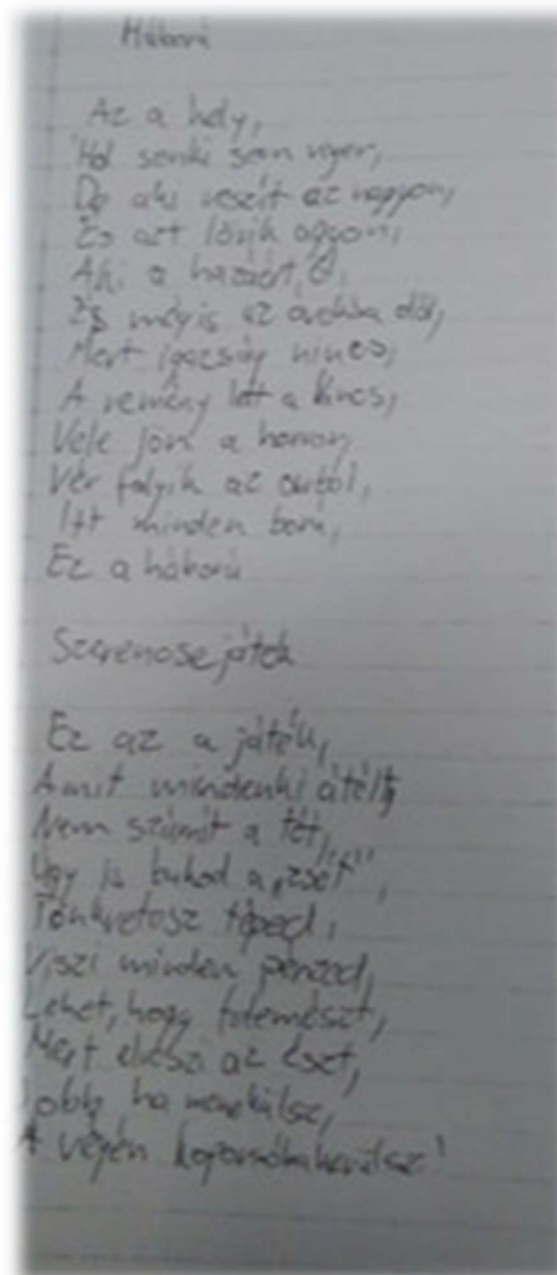 Háború
Az a hely,
Hol senki sem nyer,
De aki veszít az nagyon,
És azt lövik agyon,
Aki a hazáért, ő,
És mégis az árokba dől,
Mert igazság nincs,
A remény lett a kincs,
Vele jön a horror,
Vér folyik az
Itt minden ború,
Ez a háború
Szerencsejáték
Ez az a játék,
Amit mindenki átélt,
Nem számít a tét,
Úgy is bukod a „zsét",
Tönkretesz téged,
Viszi minden pénzed,
Lehet, hogy felemészt,
Mert elveszi az észt,
Jobb, ha menekülsz,
A végén koporsóba kerülsz!